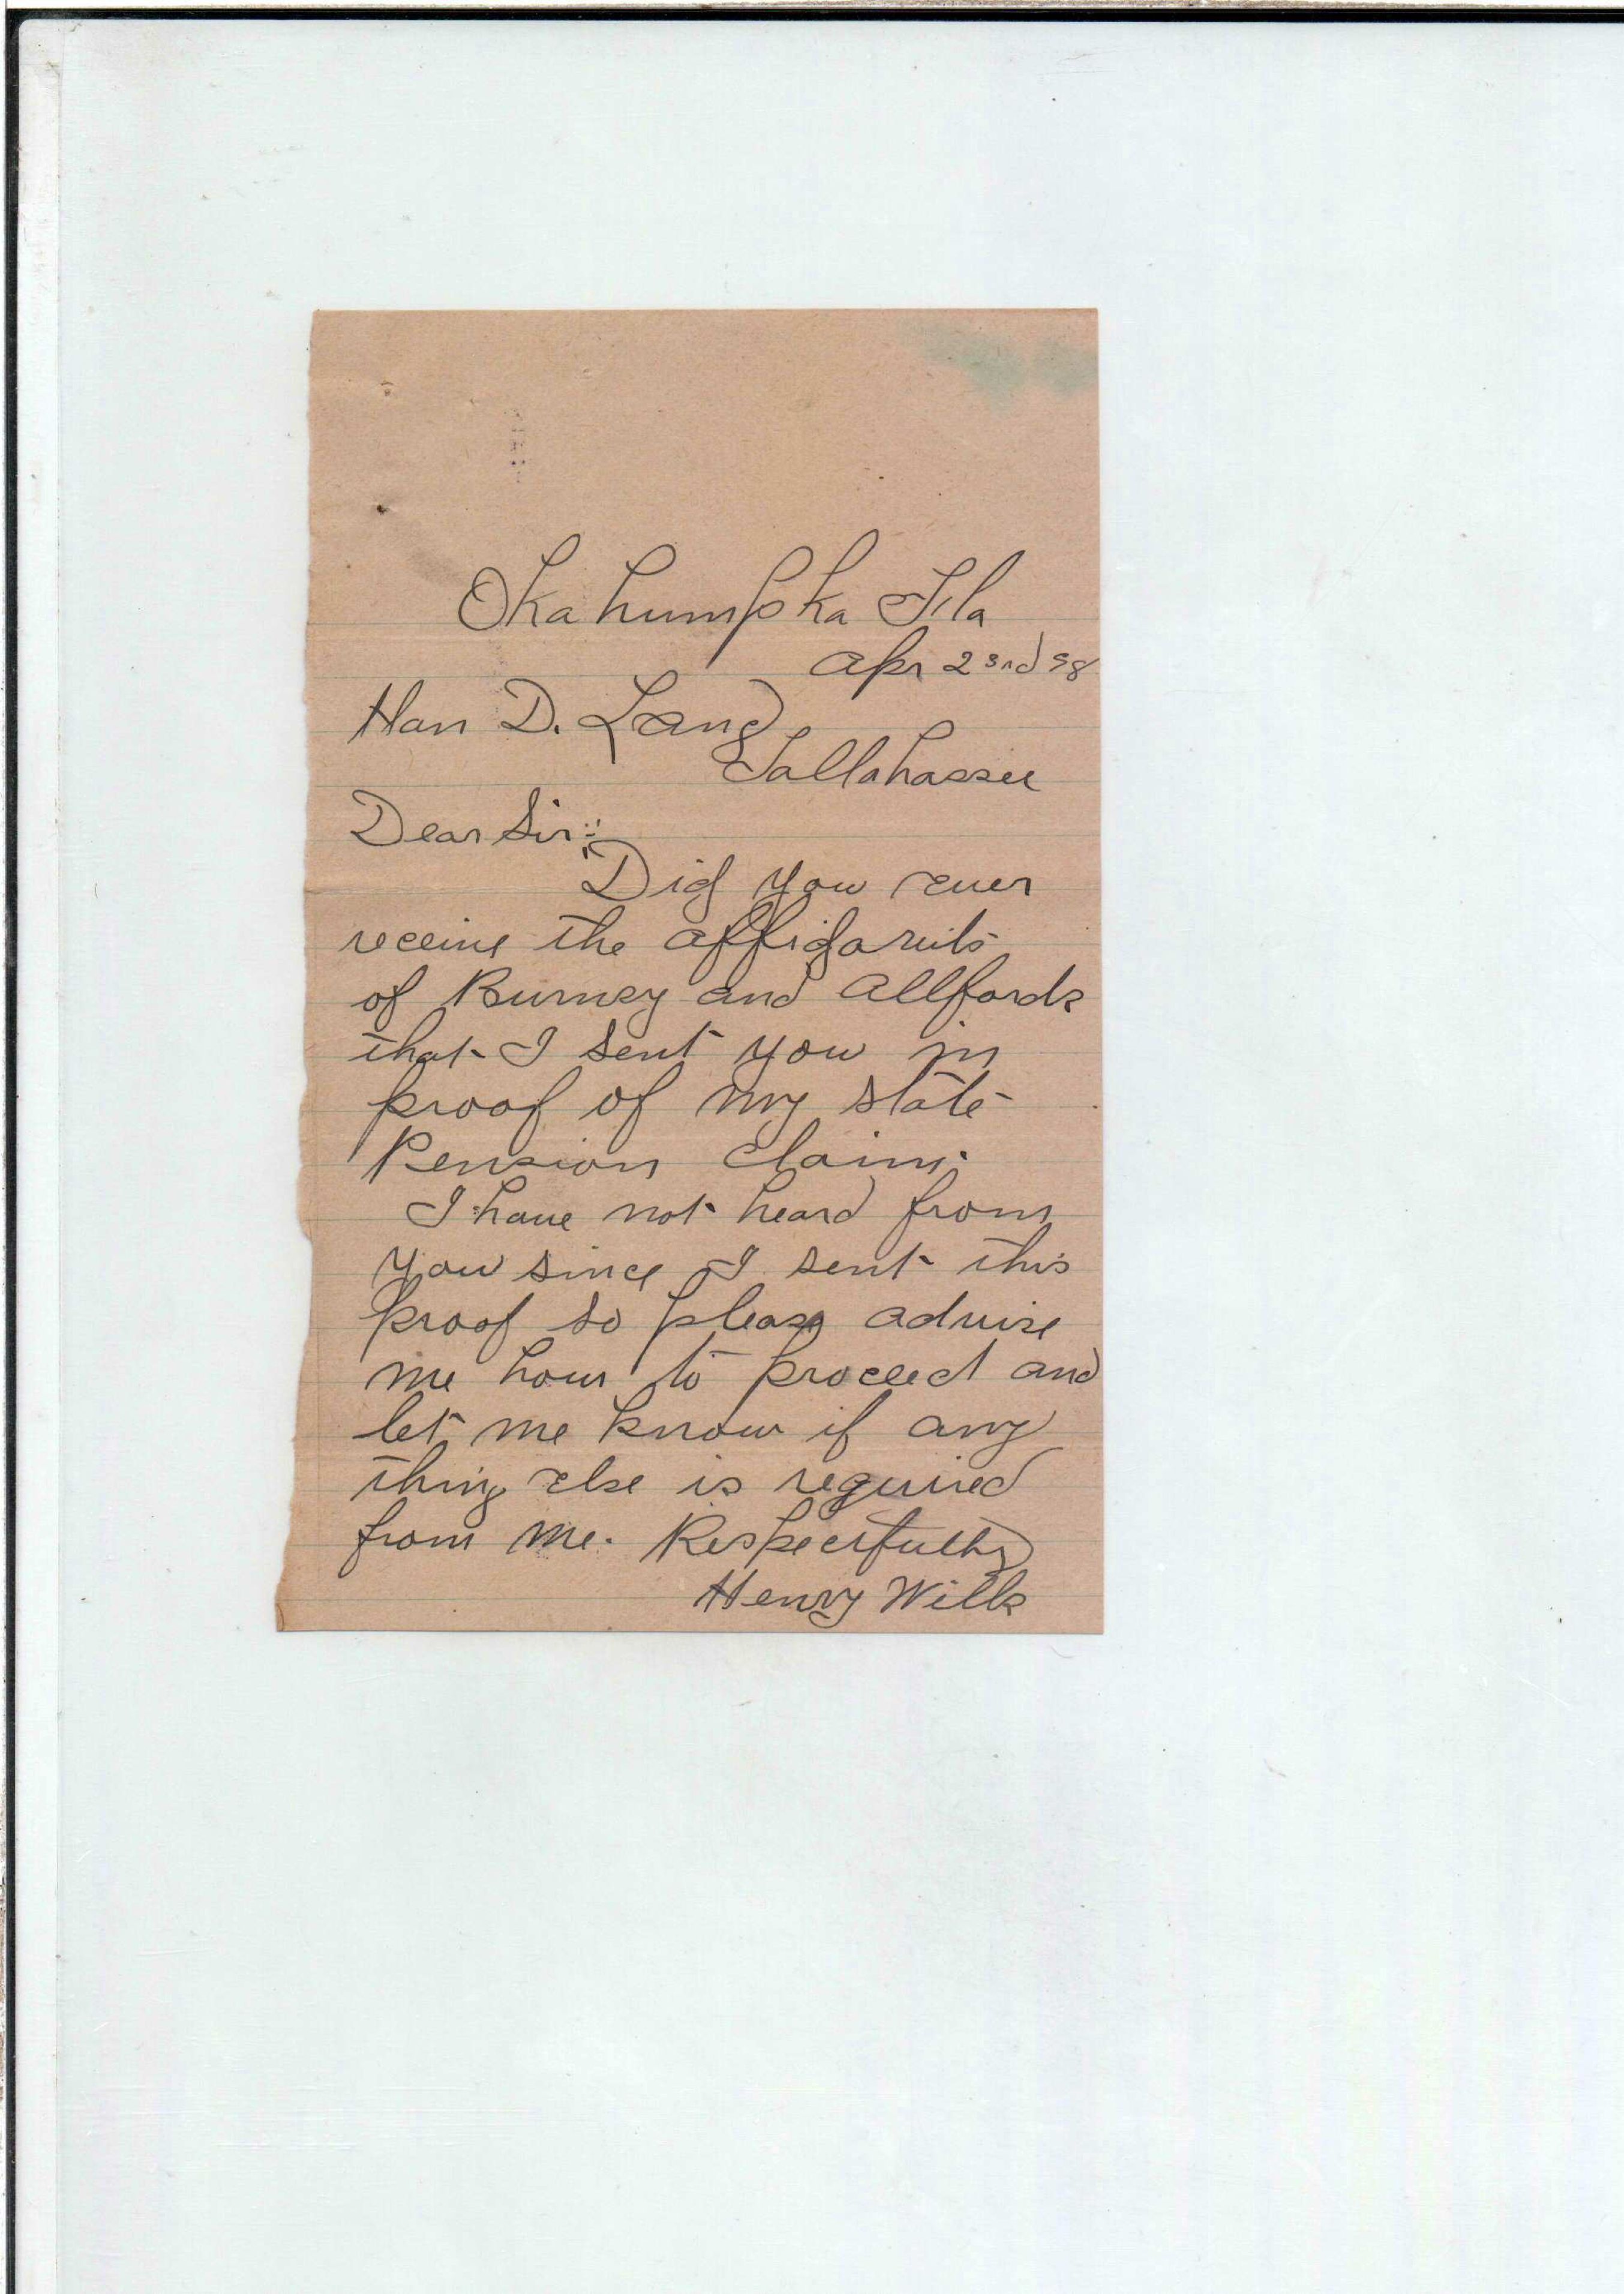 Okahumpka Fla
Apr 23rd 98
Hon D. Lang
Tallahassee
Dear Sir:
Did you ever
receive the affidavits
of Burney and Allfords
that I sent you in
proof of my state
Pension claim.
I have not heard from
you since I sent this
proof so please advise
me how to proceed and
let me know if any
thing else is required
from me. Respectfully
Henry Wilk